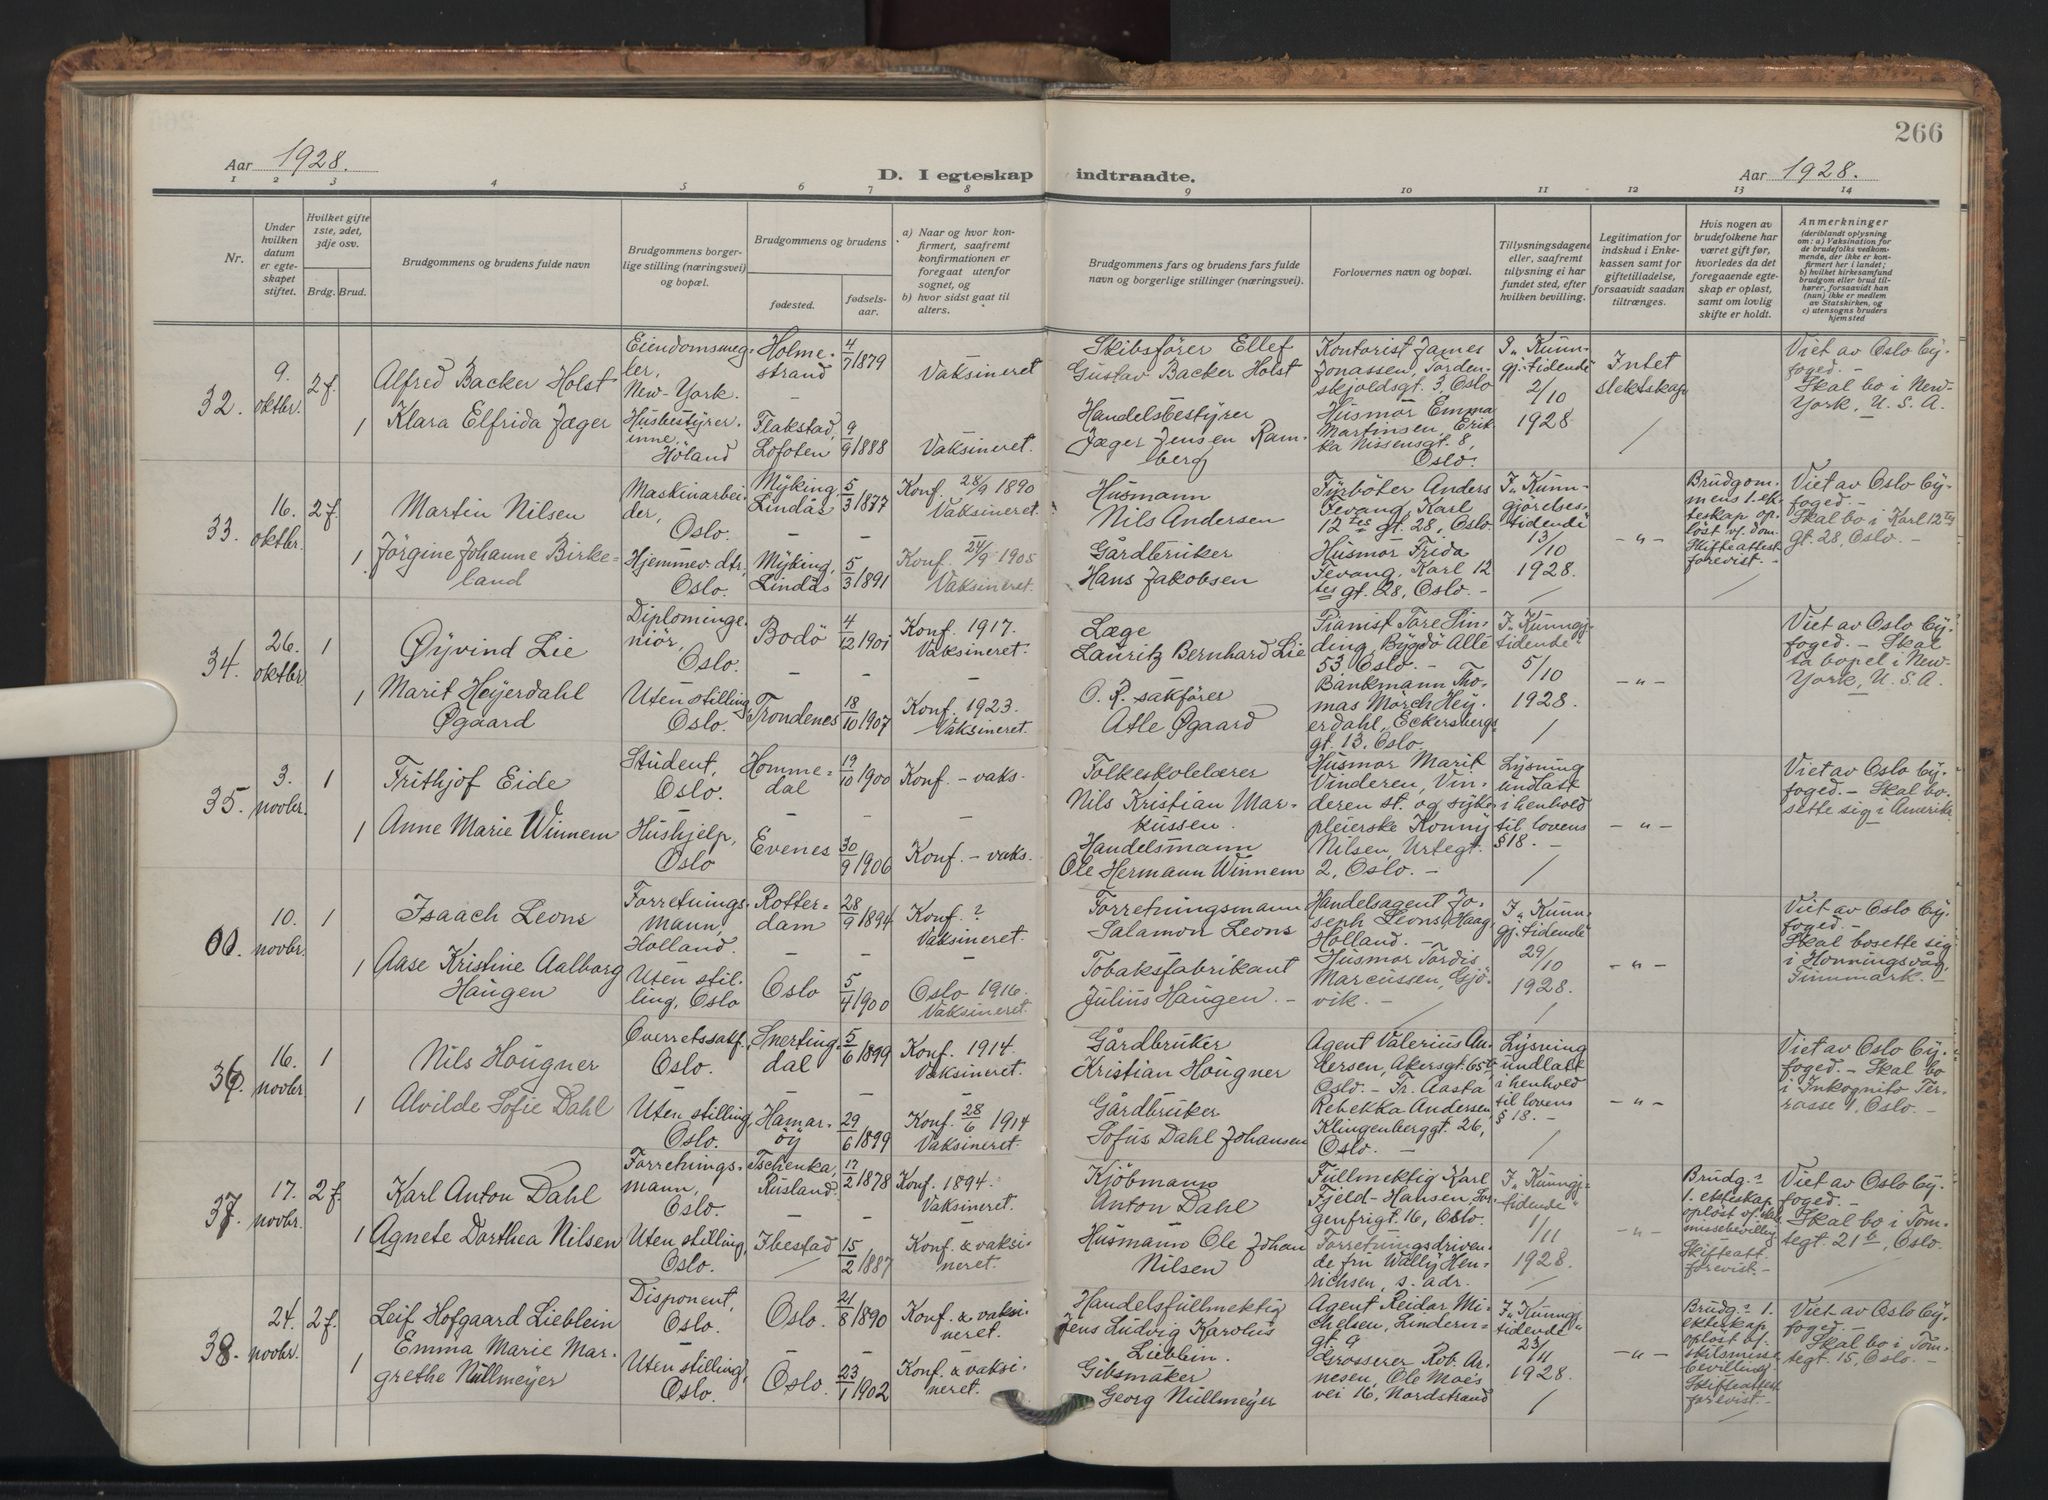 266
Aar 1928.
D. I egteskap indtraadte.
Aar 1928.
1 2 3 4 5 6 7 8 9 10 11 12 13 14
Nr.
Under hvilken datum er egteskapet stiftet.
Hvilket gifte 1ste, 2det, 3dje osv.
Brdg. Brud.
Brudgommens og brudens fulde navn
Brudgommens borgerlige stilling (næringsvei) og bopæl.
Brudgommens og brudens
fødested.
fødselsaar.
a) Naar og hvor konfirmert, saafremt konfirmationen er foregaat utenfor sognet, og
b) hvor sidst gaat til alters.
Brudgommens fars og brudens fars fulde navn og borgerlige stillinger (næringsvei).
Forlovernes navn og bopæl.
Tillysningsdagene eller, saafremt tillysning ei har fundet sted, efter hvilken bevilling.
Legitimation for indskud i Enkekassen samt for giftetilladelse, forsaavidt saadan tiltrænges.
Hvis nogen av brudefolkene har været gift før, hvorledes da det foregaaende egteskap er opløst, samt om lovlig skifte er holdt.
Anmerkninger
(deriblandt oplysning om: a) Vaksination for de brudefolks vedkommende, der ikke er konfirmert her i landet; b) hvilket kirkesamfund brudgom eller brud tilhører, forsaavidt han (hun) ikke er medlem av Statskirken, og c) utensogns bruders hjemsted
32. 9. oktbr. 2 f.
Alfred Backer Holst
Eiendomsmegler, New-York.
Holmestrand
4/7 1879
Vaksineret
Skibsfører Ellef Gustav Backer Holst
Kontorist James Jonassen, Tordenskjoldsgt. 3, Oslo
I „Kunngj. tidende“ 2/10 1928
Intet slektskap
Viet av Oslo Byfoged. – Skal bo i New-York, U. S. A.
1 Klara Elfrida Jæger
Husbestyrerinne, Höland
Flakstad, Lofoten
9/9 1888
Vaksineret.
Handelsbestyrer Jæger Jensen Ramberg
Husmor Emma Martinsen, Erikka Nissensgt. 8, Oslo.
33. 16. oktbr. 2 f.
Martin Nilsen
Maskinarbeider, Oslo.
Myking, Lindås
5/3 1877
Konf. 28/9 1890 Vaksineret.
Husmann Nils Andersen
Fyrböter Anders Fevang, Karl 12tes gt. 28, Oslo
I „Kunngjörelsestidende“ 13/10 1928.
– " –
Brudgommens 1. ekteskap oplöst v. dom. Skifteattest forevist. –
Viet av Oslo Byfoged. – Skal bo i Karl 12tes gt. 28, Oslo. –
1 Jörgine Johanne Birkeland
Hjemmev. dtr. Oslo.
Myking, Lindås
5/3 1891
Konf. 24/9 1905 Vaksineret.
Gårdbruker Hans Jakobsen
Husmor Frida Fevang, Karl 12tes gt. 28, Oslo. –
34. 26. oktbr. 1
Øyvind Lie
Diplomingeniör, Oslo.
Bodö
4/12 1901
Konf. 1917. Vaksineret.
Læge Lauritz Bernhard Lie
Pianist Tore Sinding, Bygdö Allé 53 Oslo. –
I „Kunngj. tidende“ 5/10 1928.
– " –
Viet av Oslo Byfoged. – Skal ta bopel i New-York, U. S. A.
1 Marit Heyerdahl Øgaard
Uten stilling Oslo.
Trondenes
18/10 1907
Konf. 1923. Vaksineret.
O. R. sakförer Atle Øgaard
Bankmann Thomas Mörch Heyerdahl, Eckersbergsgt. 13, Oslo.
35. 3. novbr. 1
Frithjof Eide
Student, Oslo.
Hommedal
19/10 1900
Konf. – vaks.
Folkeskolelærer Nils Kristian Markussen.
Husmor Marit Vinderen, Vinderen st. og sykepleierske Konny Nilsen, Urtegt. 2, Oslo. –
Lysning undlatt i henhold til lovens § 18. –
– " –
Viet av Oslo Byfoged. – Skal bosette sig i Amerika.
1 Anne Marie Winnem
Hushjelp, Oslo
Evenes
30/9 1906
Konf. – vaks.
Handelsmann Ole Hermann Winnem
00. 10. novbr. 1
Isaach Leons
Forretningsmann, Holland.
Rotterdam
28/9 1894
Konf. ? Vaksineret.
Forretningsmann Salamon Leons
Handelsagent Joseph Leons, Haag, Holland. –
I „Kunngj. tidende“ 29/10 1928.
– " –
Viet av Oslo Byfoged. – Skal bosette sig i Honningsvåg, Finnmark. –
1 Aase Kristine Aalborg Haugen
Uten stilling, Oslo
Oslo
5/4 1900
Oslo 1916. Vaksineret.
Tobaksfabrikant Julius Haugen. –
Husmor Tordis Marcussen, Gjövik. –
36. 16. novbr. 1
Nils Hougner
Overretssakf. Oslo.
Snertingdal
5/6 1899
Konf. 1914. Vaksineret.
Gårdbruker Kristian Hougner
Agent Valerius Andersen, Akersgt. 65 Oslo. – Fr. Aasta Rebekka Andersen, Klingenberggt. 26, Oslo. –
Lysning undlatt i henhold til lovens § 18. –
– " –
Viet av Oslo Byfoged. – Skal bo i Inkognito Terrasse 4, Oslo. –
1 Alvilde Sofie Dahl
Uten stilling, Oslo.
Hamaröy
29/6 1899
Konf. 28/6 1914 Vaksineret.
Gårdbruker Sofus Dahl Johansen
37. 17. novbr. 2 f.
Karl Anton Dahl
Forretningsmann, Oslo.
Tschenka, Rusland.
17/2 1878
Konf. 1894. Vaksineret.
Kjöbmann Anton Dahl
Fullmektig Karl Fjeld-Hansen, Sorgenfrigt. 16, Oslo.
I „Kunngj. tidende“ 1/11 1928.
– " –
Brudg.s 1. ekteskap oplöst v. skilsmissebevilling Skifteatt. forevist. –
Viet av Oslo Byfoged. – Skal bo i Tomtegt. 21b, Oslo.
1 Agnete Dorthea Nilsen
Uten stilling, Oslo.
Ibestad
15/2 1887
Konf. & vaksineret.
Husmann Ole Johan Nilsen
Forretningsdrivende fru Wally Henrichsen, s. adr.
38. 24. novbr. 2 f.
Leif Hofgaard Lieblein
Disponent, Oslo.
Oslo.
21/8 1890
Konf. & vaksineret.
Handelsfullmektig Jens Ludvig Karolus Lieblein.
Agent Reidar Michelsen, Linderngt. 9
I „Kunngj. tidende“ 23/11 1928.
– " –
Brudg.s 1. ekteskap oplöst v. skilsmissebevilling. Skifteattest forevist. –
Viet av Oslo Byfoged. – Skal bo i Tomtegt. 15, Oslo. –
1 Emma Marie Margrethe Nüllmeyer
Uten stilling, Oslo.
Oslo.
23/1 1902
Konf. & vaksineret.
Gibsmaker Georg Nüllmeyer
Grosserer Rob. Arnesen, Ole Moesvei 16, Nordstrand